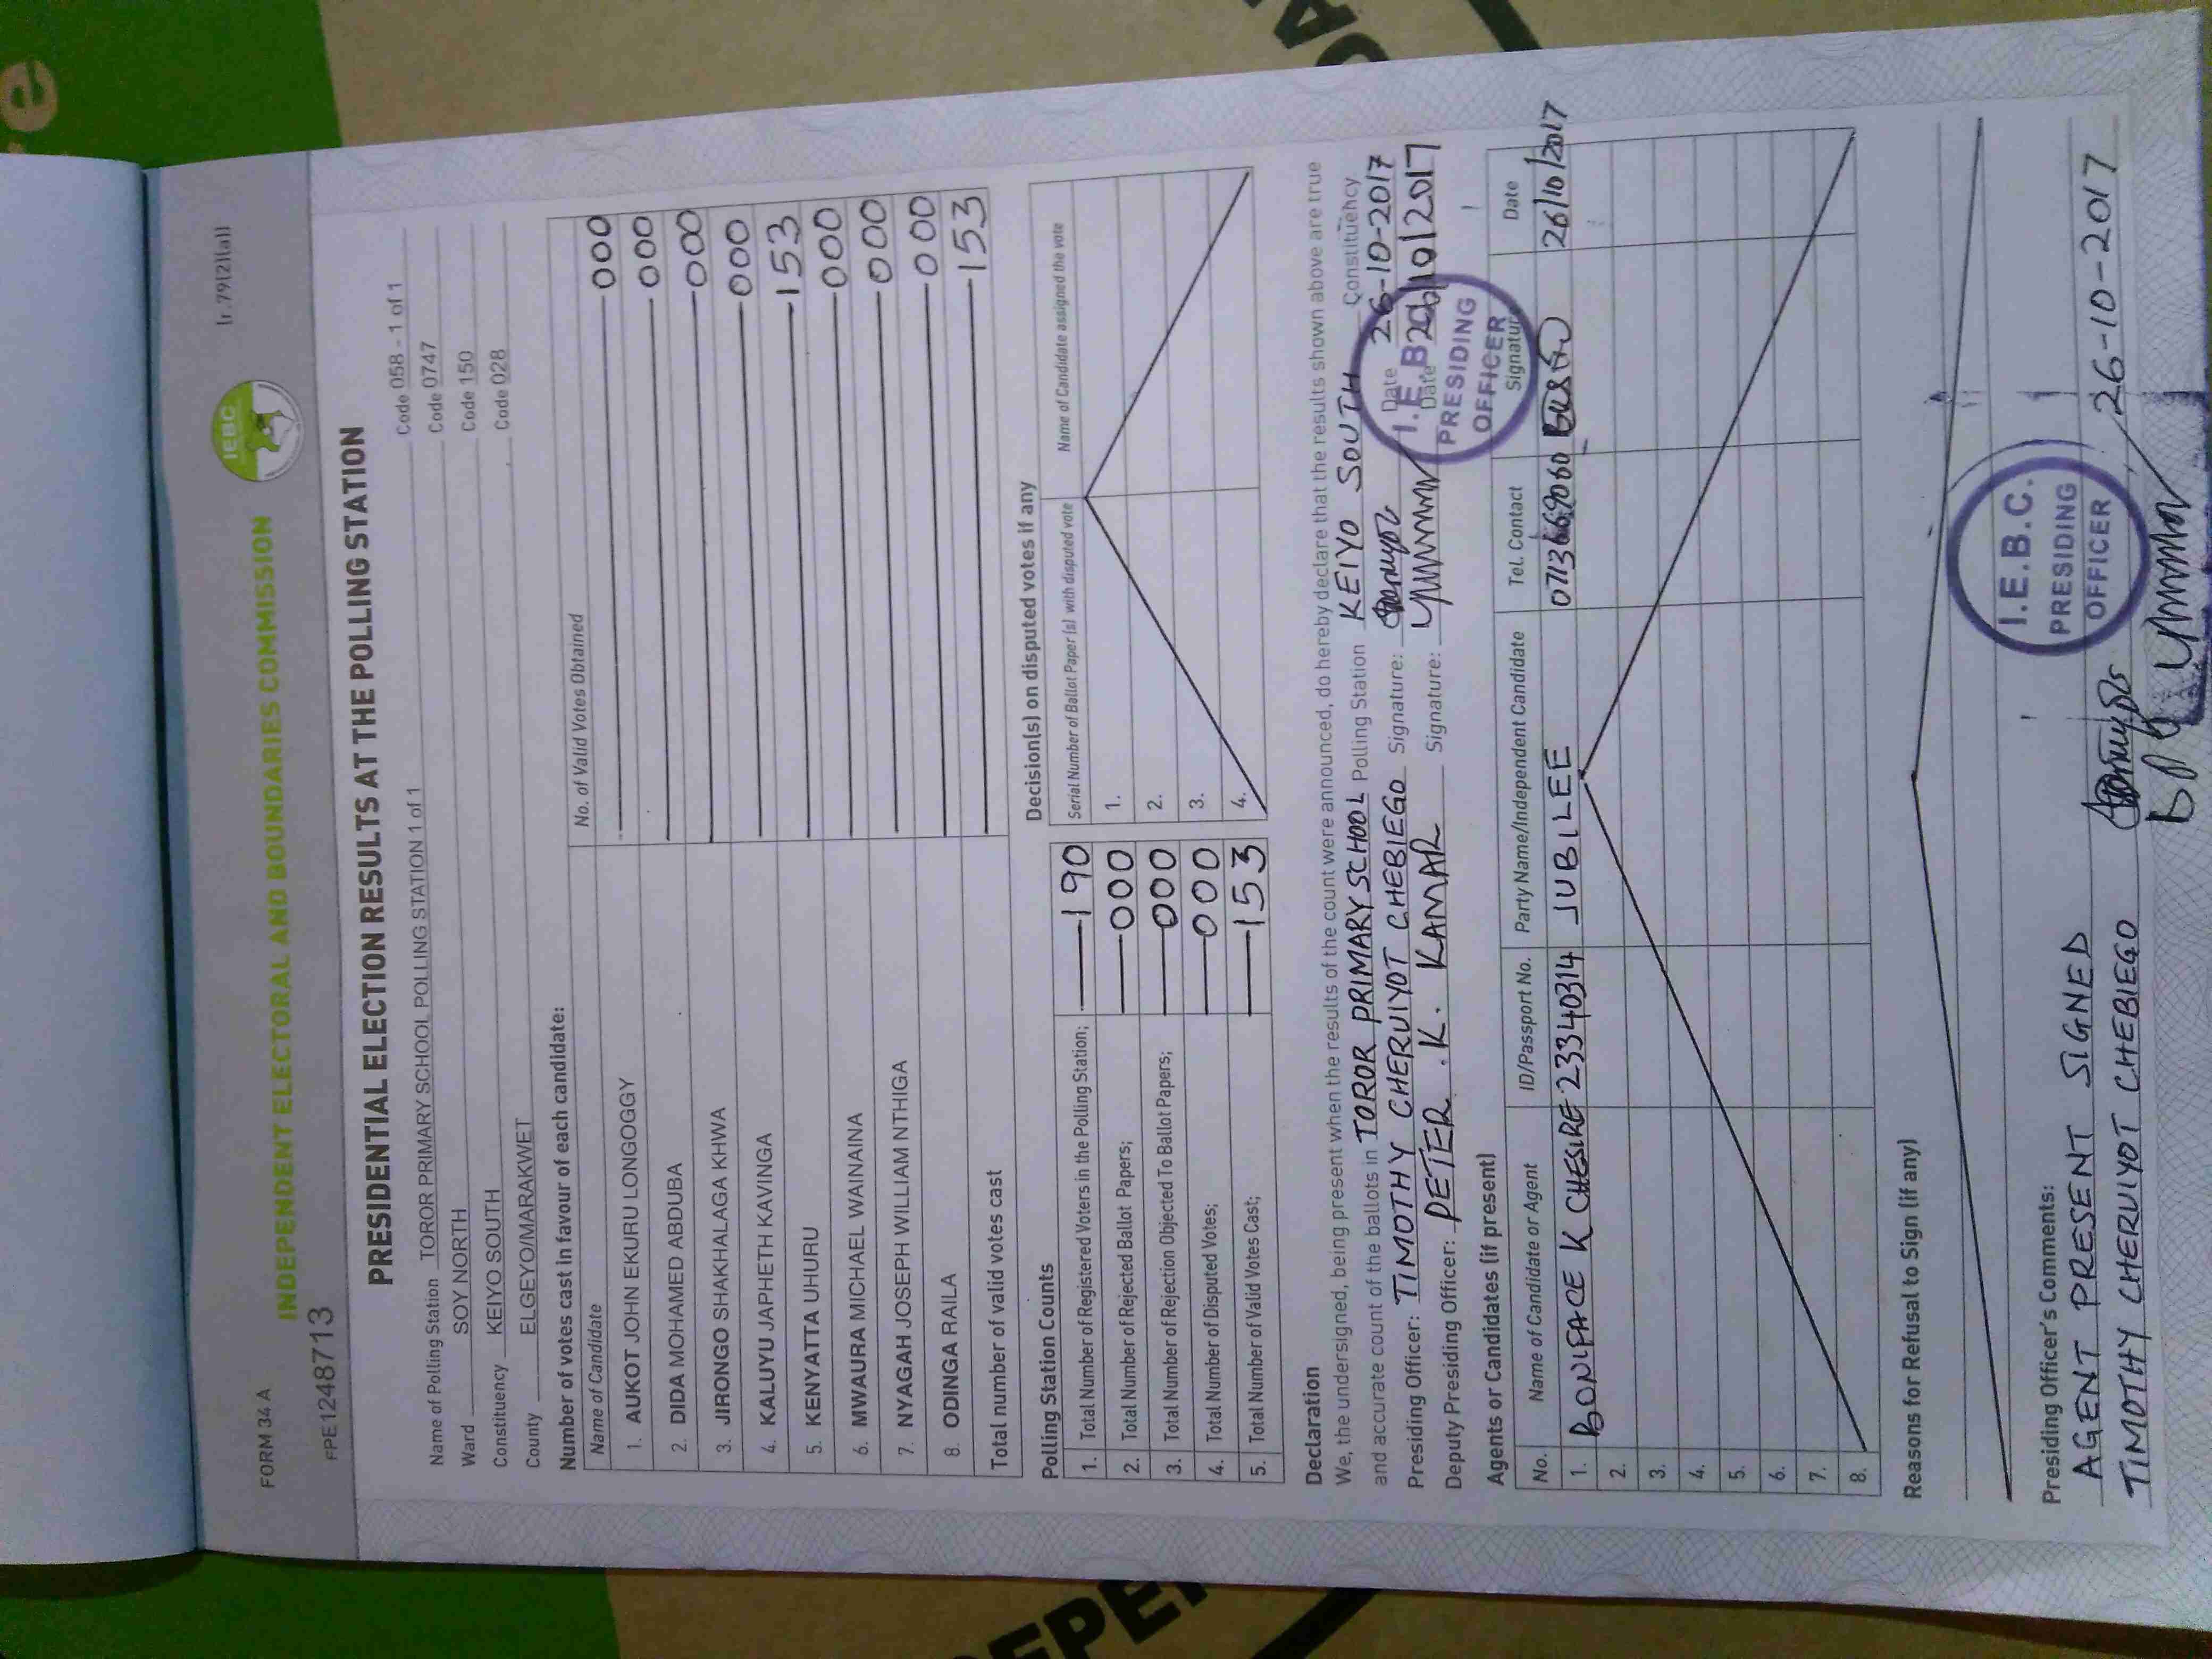 FORM 34 A
INDEPENDENT ELECTORAL AND BOUNDARIES COMMISSION
IEBC
(r.79(2)(a))
FPE1248713
PRESIDENTIAL ELECTION RESULTS AT THE POLLING STATION
Name of Polling Station TOROR PRIMARY SCHOOL POLLING STATION 1 of 1 Code 058 - 1 of 1
Ward SOY NORTH Code 0747
Constituency KEIYO SOUTH Code 150
County ELGEYO/MARAKWET Code 028
Number of votes cast in favour of each candidate:
Name of Candidate No. of Valid Votes Obtained
1. AUKOT JOHN EKURU LONGOGGY 000
2. DIDA MOHAMED ABDUBA 000
3. JIRONGO SHAKHALAGA KHWA 000
4. KALUYU JAPHETH KAVINGA 000
5. KENYATTA UHURU 153
6. MWAURA MICHAEL WAINAINA 000
7. NYAGAH JOSEPH WILLIAM NTHIGA 000
8. ODINGA RAILA 000
Total number of valid votes cast 153
Polling Station Counts
1. Total Number of Registered Voters in the Polling Station; 190
2. Total Number of Rejected Ballot Papers; 000
3. Total Number of Rejection Objected To Ballot Papers; 000
4. Total Number of Disputed Votes; 000
5. Total Number of Valid Votes Cast; 153
Decision(s) on disputed votes if any
Serial Number of Ballot Paper (s) with disputed vote Name of Candidate assigned the vote
1.
2.
3.
4.
Declaration
We, the undersigned, being present when the results of the count were announced, do hereby declare that the results shown above are true
and accurate count of the ballots in TOROR PRIMARY SCHOOL Polling Station KEIYO SOUTH Constituency
Presiding Officer: TIMOTHY CHERUIYOT CHEBIEGO Signature: Date 26-10-2017
Deputy Presiding Officer: PETER . K. KAMAR Signature: Date 26/10/2017
I.E.B
PRESIDING
OFFICER
Agents or Candidates (if present)
No. Name of Candidate or Agent ID/Passport No. Party Name/Independent Candidate Tel. Contact Signature Date
1. BONIFACE K CHESIRE 23340314 JUBILEE 0713669060 26/10/2017
2.
3.
4.
5.
6.
7.
8.
Reasons for Refusal to Sign (if any)
Presiding Officer's Comments:
AGENT PRESENT SIGNED
TIMOTHY CHERUIYOT CHEBIEGO 26-10-2017
I.E.B.C.
PRESIDING
OFFICER